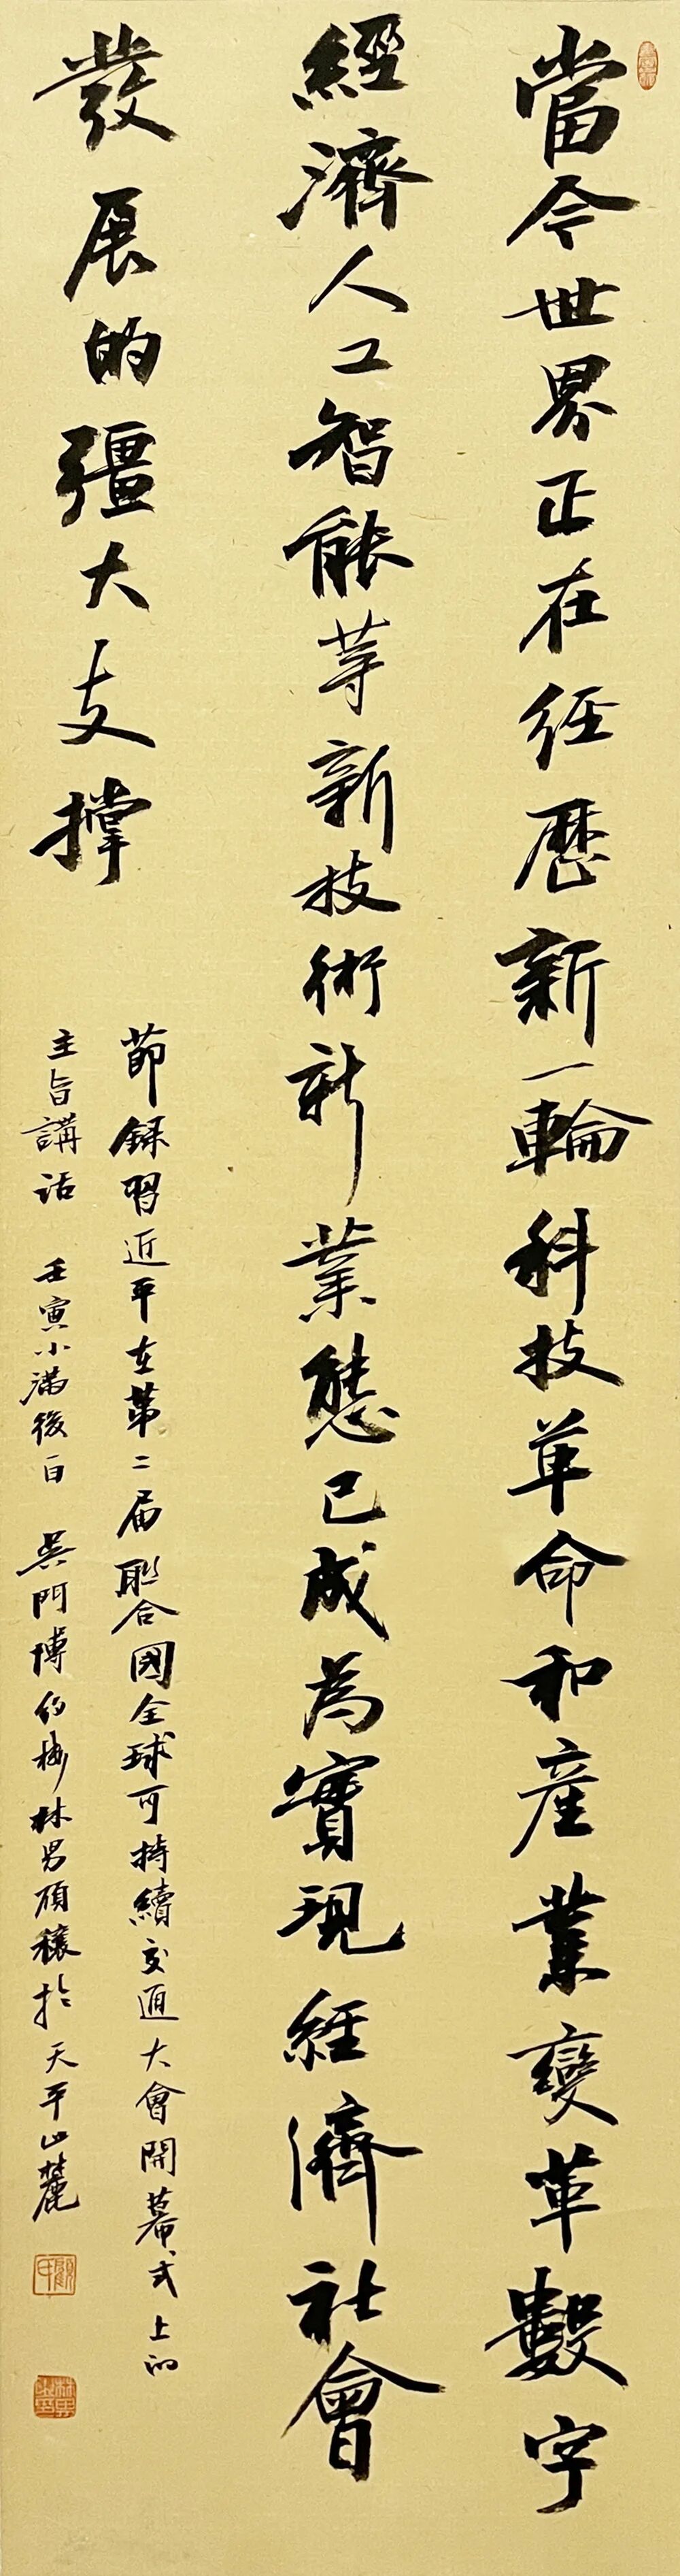 當今世界正在經歷新一輪科技革命和產業變革數字
經濟人工智能等新技術新業態已成為實現經濟社會
發展的強大支撐
節錄習近平在第二屆聯合國全球可持續交通大會開幕式上的
主旨講話 壬寅小滿後一日 吳門博約楼林男碩穰於天平山麓